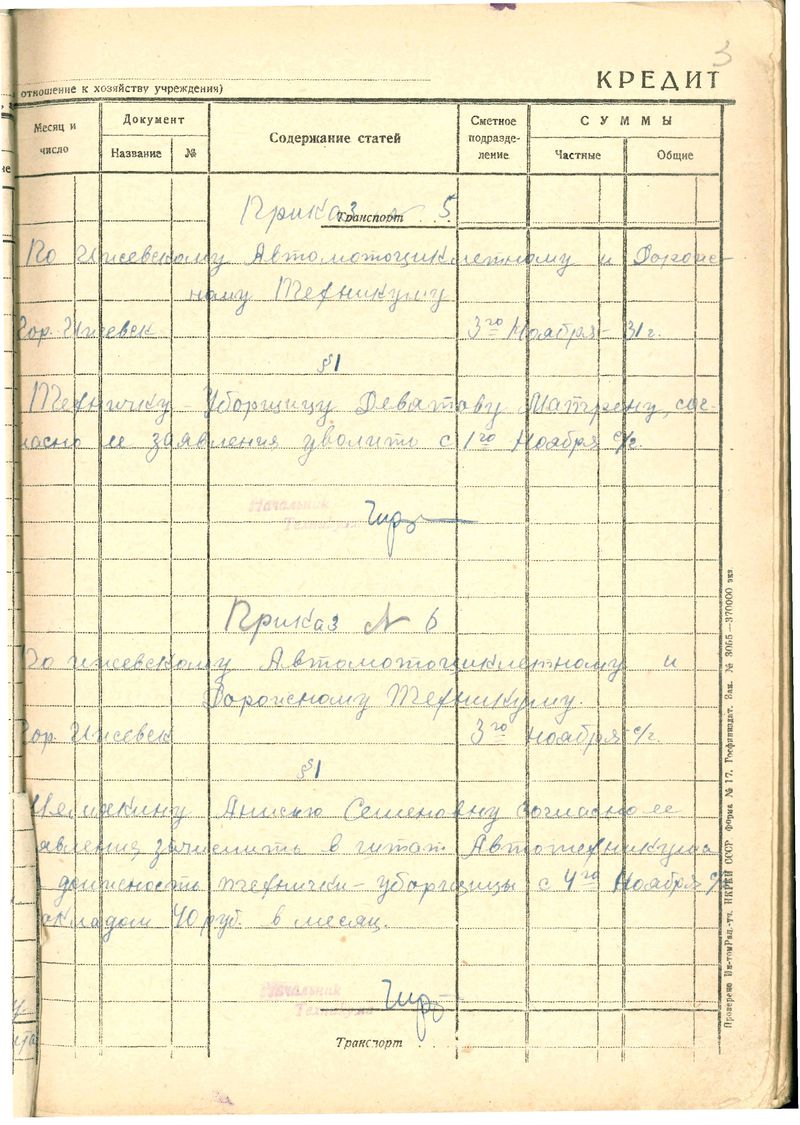 3
отношение к хозяйству учреждения)
КРЕДИТ
Месяц и число
Документ
Название
№
Содержание статей
Сметное подразде-ление
СУММЫ
Частные
Общие
Приказ № 5
Транспорт
По Ижевскому Автомотоциклетному и Дорож-
ному Техникуму
Гор. Ижевск 3го Ноября - 31 г.
§1
Техничку - Уборщицу Деватову Матрену, сог-
ласно ее заявления уволить с 1го Ноября с/г.
Начальник
Техникума
Приказ № 6
По Ижевскому Автомотоциклетному и
Дорожному Техникуму.
Гор. Ижевск 3го Ноября с/г.
§1
Анисью Семеновну согласно ее
явления зачислить в штат Автотехникума
должность технички-уборщицы с 4го Ноября с/г
окладом 40 руб. в месяц.
Начальник
Техникума
Транспорт
Проверено Ин-томРац.-тч. НКРКИ СССР Форма № 17. Госфиниздат. Зак. № 3065—370000 экз.